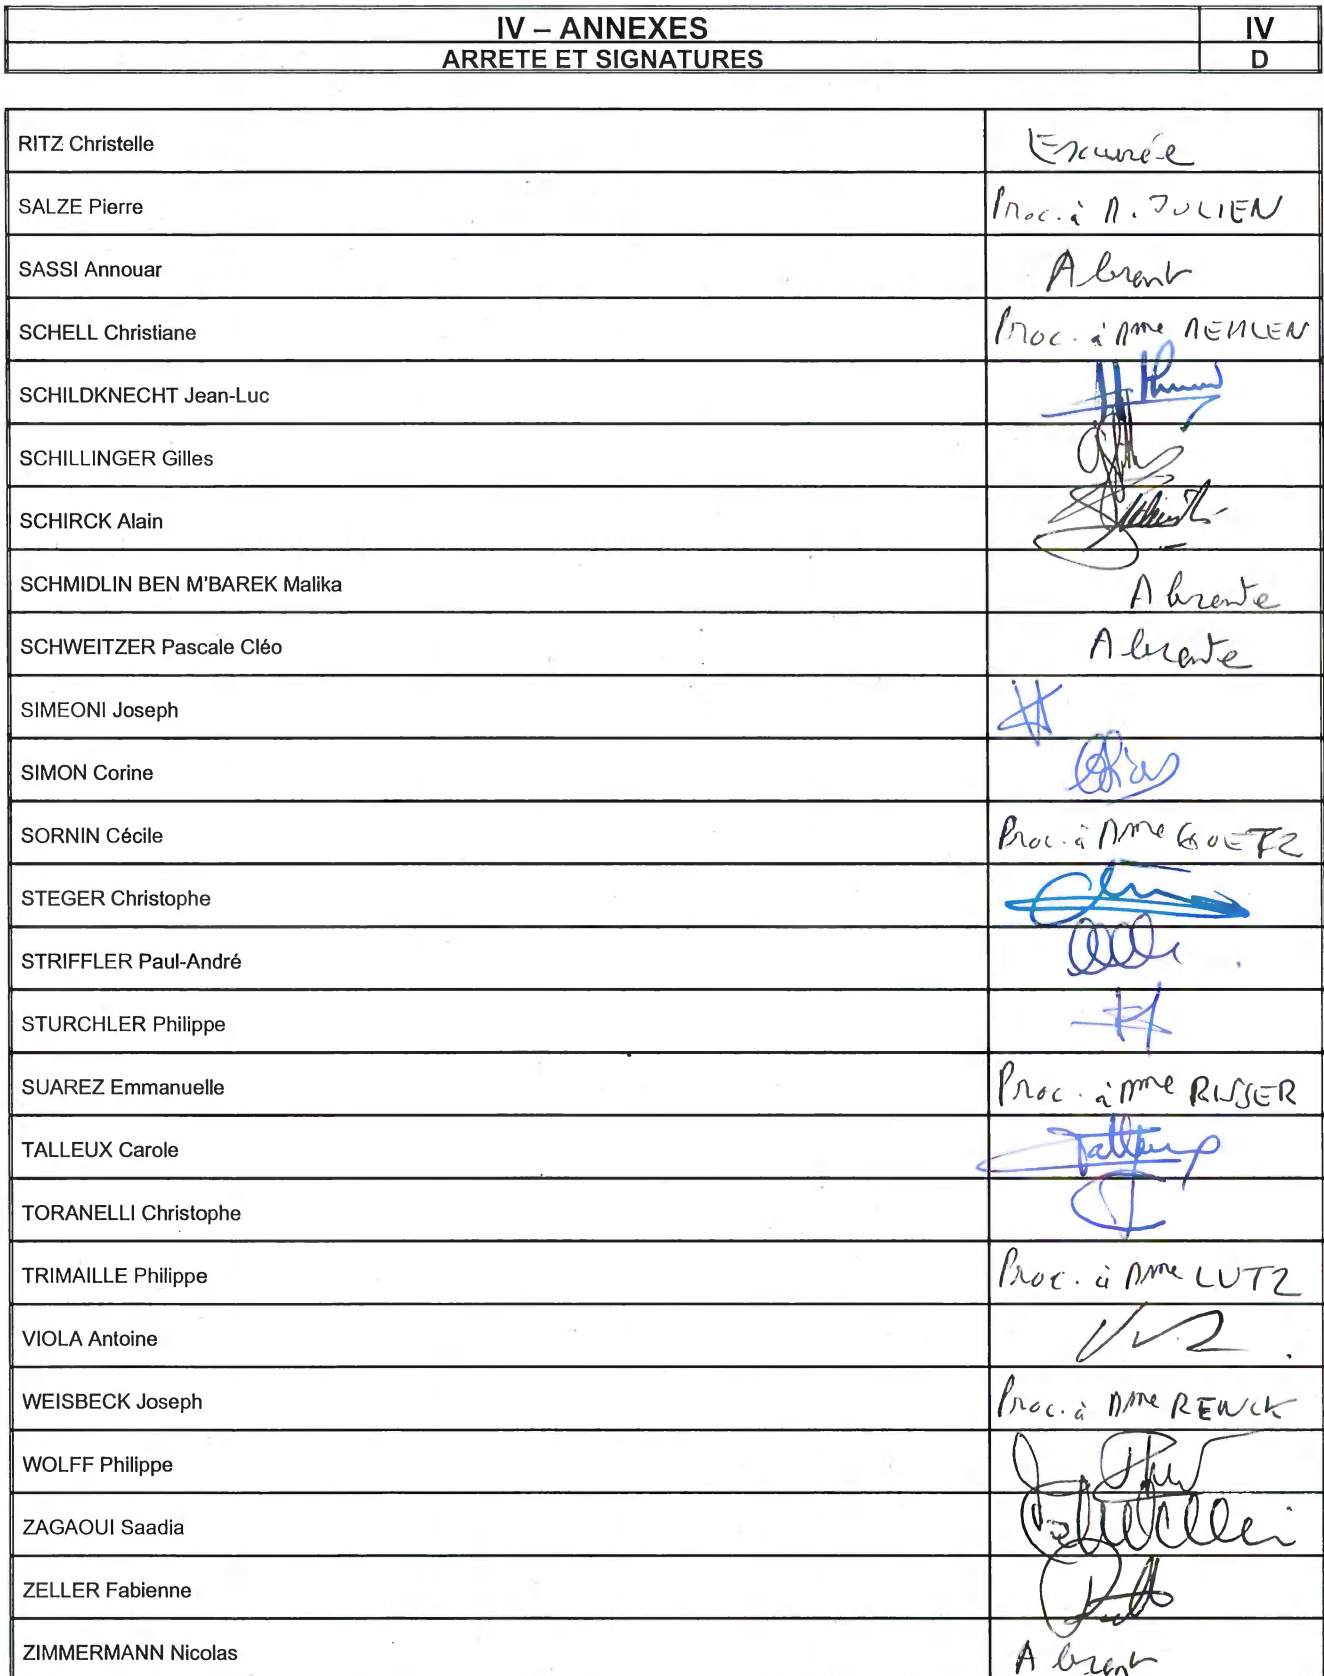 IV – ANNEXES IV
ARRETE ET SIGNATURES D
RITZ Christelle Excusée
SALZE Pierre Proc. à M. JULIEN
SASSI Annouar Absent
SCHELL Christiane Proc. à Mme MEHLEN
SCHILDKNECHT Jean-Luc
SCHILLINGER Gilles
SCHIRCK Alain
SCHMIDLIN BEN M'BAREK Malika Absente
SCHWEITZER Pascale Cléo Absente
SIMEONI Joseph
SIMON Corine
SORNIN Cécile Proc. à Mme GOETZ
STEGER Christophe
STRIFFLER Paul-André
STURCHLER Philippe
SUAREZ Emmanuelle Proc. à Mme RISSER
TALLEUX Carole Talleux
TORANELLI Christophe
TRIMAILLE Philippe Proc. à Mme LUTZ
VIOLA Antoine
WEISBECK Joseph Proc. à Mme RENCK
WOLFF Philippe
ZAGAOUI Saadia
ZELLER Fabienne
ZIMMERMANN Nicolas Absent